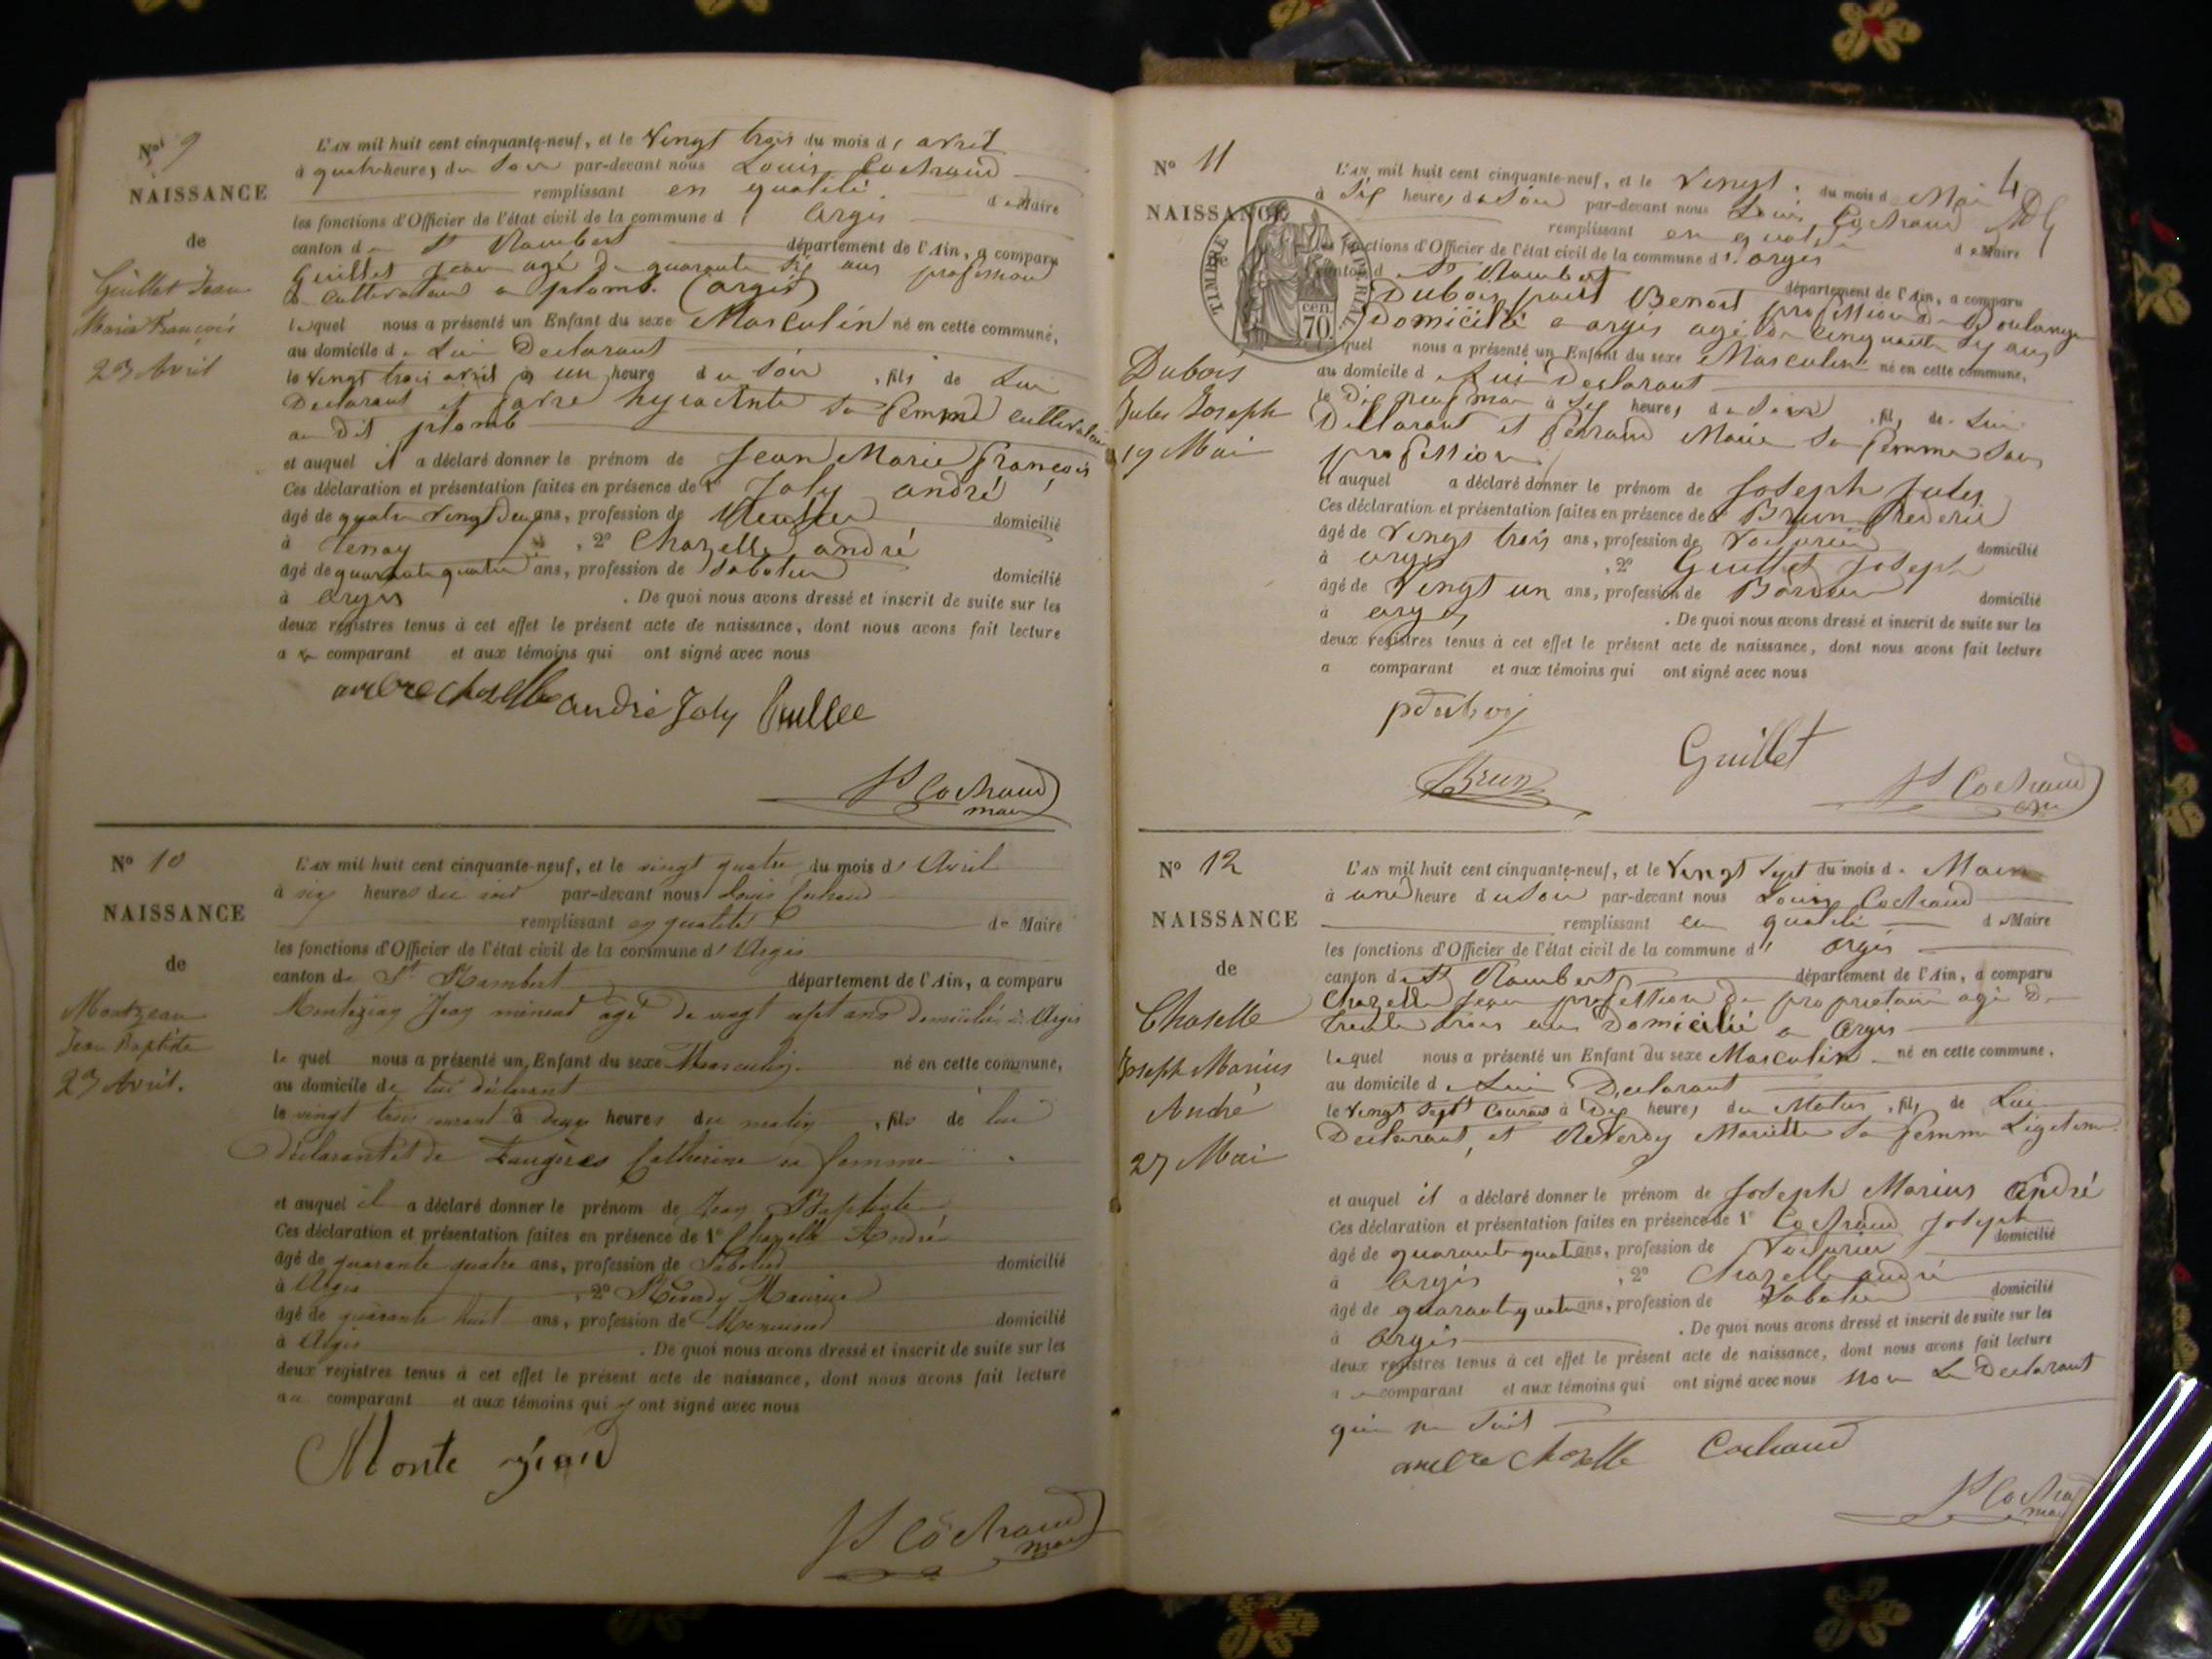 N° 9
NAISSANCE
de
Guillet Jean
Marie François
23 Avril
L'AN mil huit cent cinquante-neuf, et le Vingt trois du mois d' avril
à quatre heures du Soir par-devant nous Louis Cochraud
remplissant en qualité de Maire
les fonctions d'Officier de l'état civil de la commune d' Argis
canton de St Rambert département de l'Ain, a comparu
Guillet Jean agé de quarante six ans profession
de cultivateur a plomb. (argis)
lequel nous a présenté un Enfant du sexe Masculin né en cette commune,
au domicile de Lui Declarant
le Vingt trois avril à un heure du Soir, fils de Lui
Declarant et favre hyacinte Sa femme
au Dit plomb
et auquel il a déclaré donner le prénom de Jean Marie françois
Ces déclaration et présentation faites en présence de 1° Joly andré
âgé de quatre Vingt deux ans, profession de domicilié
à Tenay, 2° Chazelle andré
âgé de quarante quatre ans, profession de Sabotier domicilié
à Argis. De quoi nous avons dressé et inscrit de suite sur les
deux registres tenus à cet effet le présent acte de naissance, dont nous avons fait lecture
au comparant et aux témoins qui ont signé avec nous
andre chazelle andré Joly Guillet
Ls Cochraud
maire
N° 10
NAISSANCE
de
Montzean
Jean Baptiste
23 Avril.
L'AN mil huit cent cinquante-neuf, et le vingt quatre du mois d' Avril
à six heures du soir par-devant nous Louis Cochraud
remplissant en qualité de Maire
les fonctions d'Officier de l'état civil de la commune d' Argis
canton de St Rambert département de l'Ain, a comparu
Jean mineur agé de vingt sept ans domicilié à Argis
le quel nous a présenté un Enfant du sexe Masculin né en cette commune,
au domicile de lui déclarant
le vingt trois courant à deux heures du matin, fils de lui
déclarant et de Catherine sa femme
et auquel il a déclaré donner le prénom de Jean Baptiste
Ces déclaration et présentation faites en présence de 1° Chazelle André
âgé de quarante quatre ans, profession de Sabotier domicilié
à Argis, 2° Maurice
âgé de quarante huit ans, profession de Menuisier domicilié
à Argis. De quoi nous avons dressé et inscrit de suite sur les
deux registres tenus à cet effet le présent acte de naissance, dont nous avons fait lecture
au comparant et aux témoins qui ont signé avec nous
Ls Cochraud
maire
4
N° 11
NAISSANCE
TIMBRE IMPERIAL
70 cen
Dubois
Jules Joseph
19 Mai
L'AN mil huit cent cinquante-neuf, et le Vingt du mois de Mai
à Six heures du Soir par-devant nous Louis Cochraud
remplissant en qualité de Maire
les fonctions d'Officier de l'état civil de la commune d' argis
canton de St Rambert département de l'Ain, a comparu
Dubois Benoit profession de Boulanger
Domicilié a argis agé de cinquante Six ans
lequel nous a présenté un Enfant du sexe Masculin né en cette commune,
au domicile de Lui Declarant
le Dix neuf mai à Six heures du Soir, fils de Lui
Declarant et Ferraud Marie Sa femme Sans
profession
et auquel a déclaré donner le prénom de Joseph Jules
Ces déclaration et présentation faites en présence de 1° Brun frederic
âgé de Vingt trois ans, profession de Voiturier domicilié
à argis, 2° Guillet Joseph
âgé de Vingt un ans, profession de domicilié
à argis. De quoi nous avons dressé et inscrit de suite sur les
deux registres tenus à cet effet le présent acte de naissance, dont nous avons fait lecture
a comparant et aux témoins qui ont signé avec nous
pdubois
Guillet
Brun
Ls Cochraud
N° 12
NAISSANCE
de
Chaselle
Joseph Marius
André
27 Mai
L'AN mil huit cent cinquante-neuf, et le Vingt Sept du mois de Mai
à une heure du Soir par-devant nous Louis Cochraud
remplissant en qualité de Maire
les fonctions d'Officier de l'état civil de la commune d' argis
canton de St Rambert département de l'Ain, a comparu
Chazelle Jean profession de proprietaire agé de
trente trois ans Domicilié a Argis
lequel nous a présenté un Enfant du sexe Masculin né en cette commune,
au domicile de Lui Declarant
le Vingt Sept Courant à Dix heures du Matin, fils de Lui
Declarant, et ReVerdy Mariette Sa femme Legitime
et auquel il a déclaré donner le prénom de Joseph Marius André
Ces déclaration et présentation faites en présence de 1° Cochraud Joseph
âgé de quarante quatre ans, profession de Voiturier domicilié
à Argis, 2° Chazelle andré
âgé de quarante quatre ans, profession de Sabotier domicilié
à Argis. De quoi nous avons dressé et inscrit de suite sur les
deux registres tenus à cet effet le présent acte de naissance, dont nous avons fait lecture
au comparant et aux témoins qui ont signé avec nous non Le Declarant
qui ne Sait
andre chazelle Cochraud
Ls Cochraud
maire